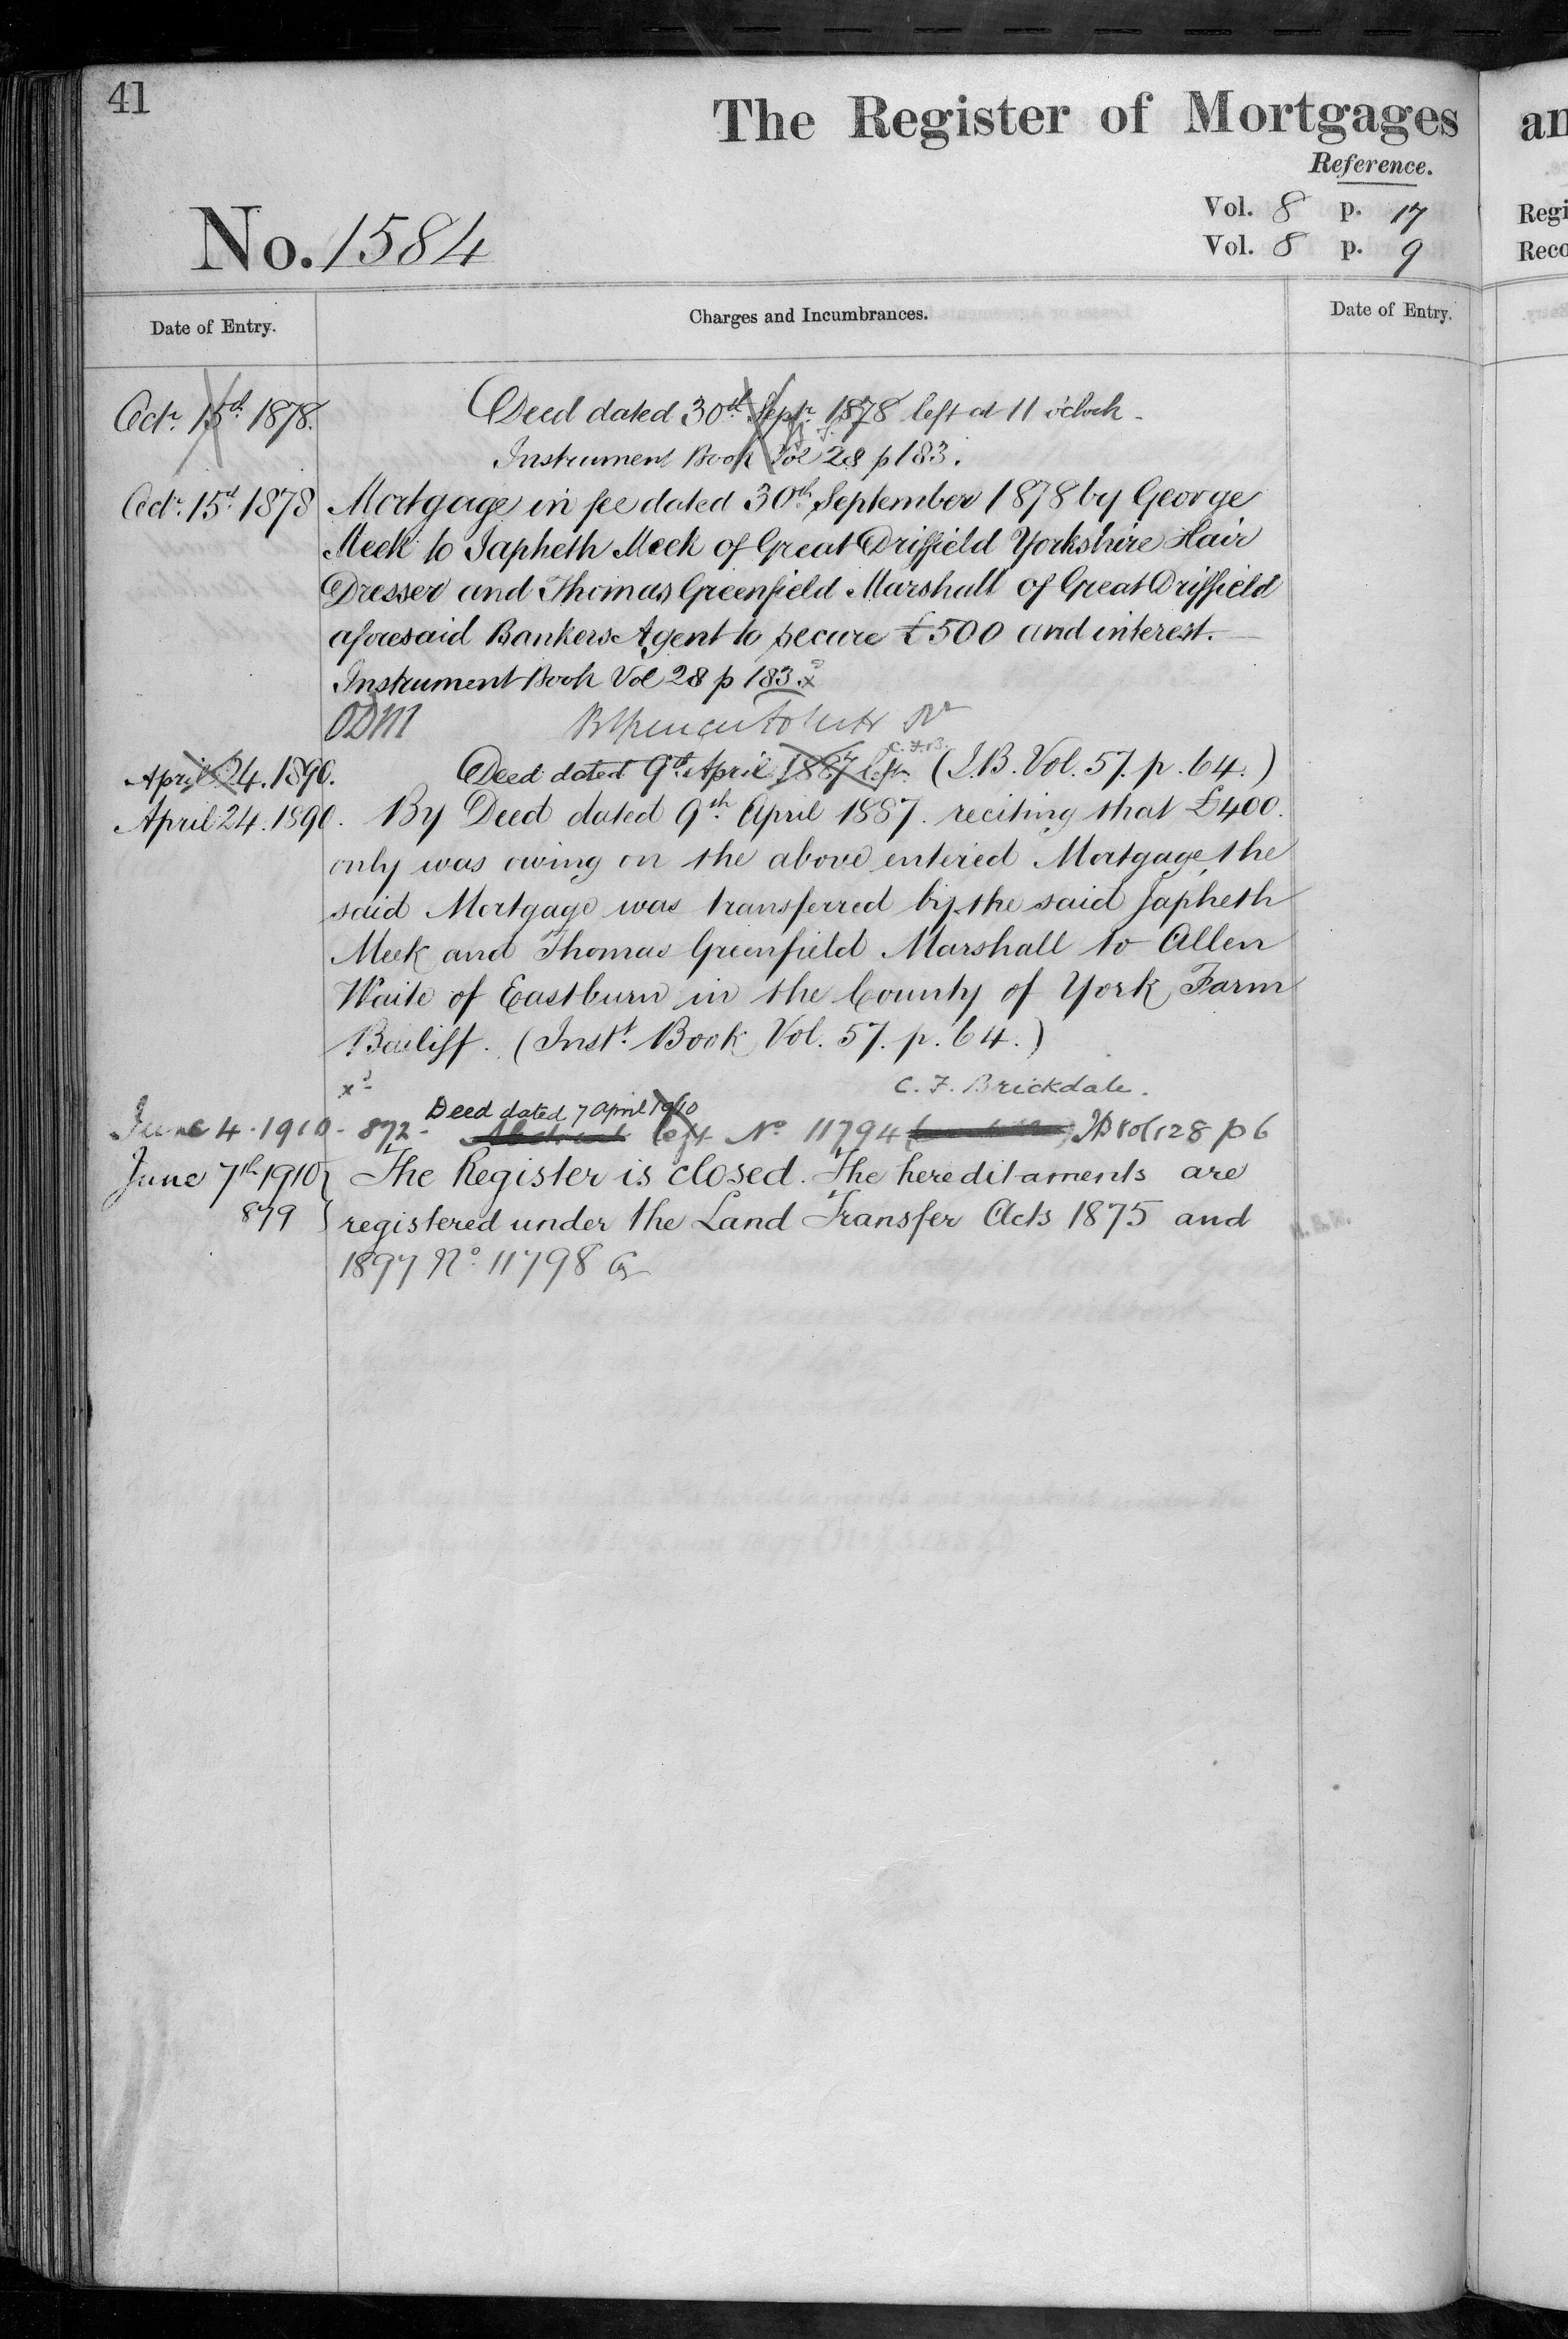 41
The Register of Mortgages
Reference.
Vol. 8 p. 17
No. 1584
Vol. 8 p. 9
Date of Entry.
Charges and Incumbrances.
Date of Entry.
Octr. 15th 1878. Deed dated 30th Septr. 1878 left at 11 o'clock -
Instrument Book Vol 28 p 183.
Octr. 15th 1878 Mortgage in fee dated 30th September 1878 by George
Meek to Japheth Meek of Great Driffield Yorkshire Hair
Dresser and Thomas Greenfield Marshall of Great Driffield
aforesaid Bankers Agent to secure £500 and interest.
Instrument Book Vol 28 p 183. x
ODM
C.F.B.
April 24. 1890. Deed dated 9th April 1887 left. (I.B. Vol. 57. p. 64.)
April 24. 1890. By Deed dated 9th April 1887. reciting that £400.
only was owing on the above entered Mortgage the
said Mortgage was transferred by the said Japheth
Meek and Thomas Greenfield Marshall to Allen
Waite of Eastburn in the County of York Farm
Bailiff. (Inst. Book Vol. 57. p. 64.)
x C. F. Brickdale.
Deed dated 7 April 1910
June 4. 1910 - 872 - Abstract left No 11794 IB Vol 128 p 6
June 7th 1910 The Register is closed. The hereditaments are
879 registered under the Land Transfer Acts 1875 and
1897 No. 11798
an
Regi
Reco